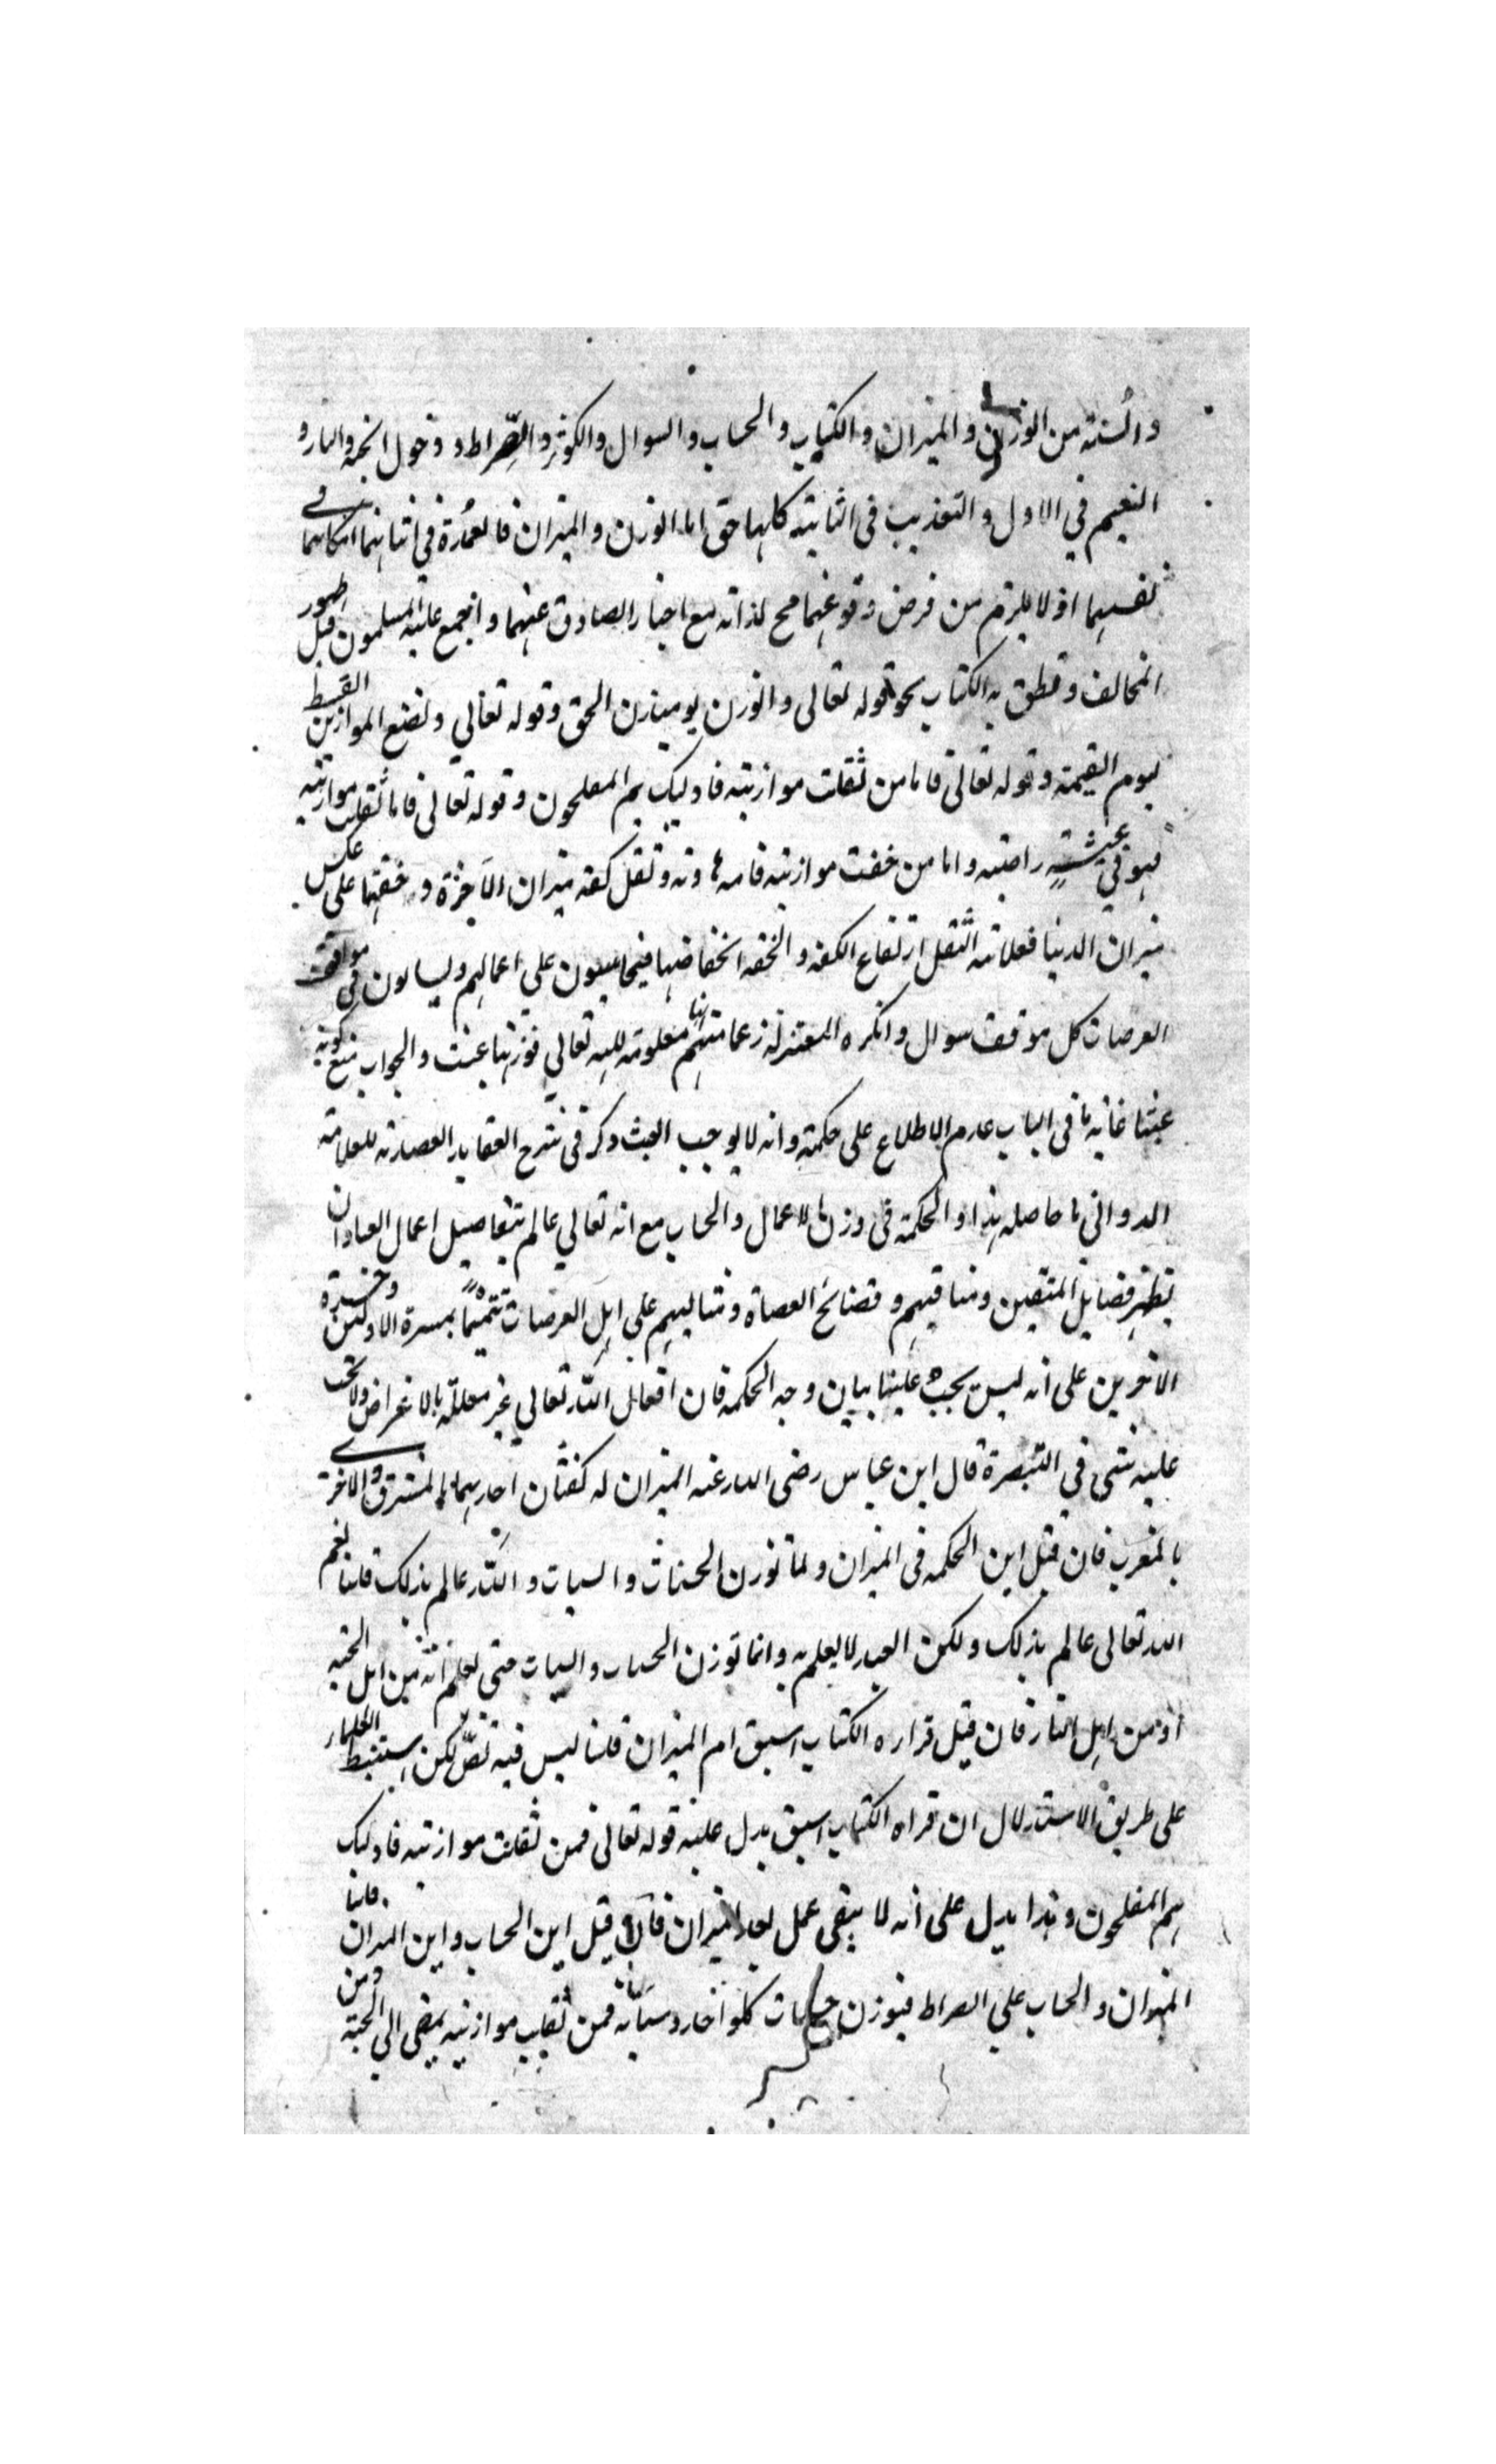 والسنة من الوزن والميزان والكتاب والحساب والسوال والكوثر والصّراط ودخول الجنة والنار و
النعيم في الاول والتعذيب في الثانية كلها حق اما الوزن والميزان فالعمدة في اثباتهما امكانهما في
نفسهما اذ لا يلزم من فرض وقوعهما مح لذاته مع اخبار الصادق عنهما واجمع عليه المسلمون قبل ظهور
المخالف ونطق به الكتاب نحو قوله تعالى والوزن يومئذن الحق وقوله تعالي ونضع الموازين القسط
ليوم القيمة وقوله تعالى فاما من ثقلت موازينه فاوليك هم المفلحون وقوله تعالى فاما ثقلت موازينه
فهو في عيشة راضية واما من خفت موازينه فامه هاوية وثقل كفة ميزان الآخرة وخفتها على عكس
ميزان الدنيا فعلامة الثقل ارتفاع الكفة والخفة انخفاضها فيحاسبون علي اعمالهم ويسالون في مواقف
العرصات كل موقف سوال وانكره المعتزلة زعما منهم انها معلومة لله تعالي فوزنها عبث والجواب منع كونه
عبثا غاية ما في الباب عدم الاطلاع على حكمته وانه لا يوجب العبث وذكر في شرح العقايد العضدية للعلامة
الدواني ما حاصله هذا والحكمة في وزن الاعمال والحساب مع انه تعالي عالم بتفاصيل اعمال العباد ان
يظهر فضايل المتقين ومناقبهم وفضائح العصاة ومثالبهم على اهل العرصات تتميمًا بمسرة الاولين وحسرة
الاخرين على أنه ليس يجب علينا بيان وجه الحكمة فان افعال الله تعالي غير معللة بالاغراض ولا تجب
عليه شي في التبصرة قال ابن عباس رضى الله عنه الميزان له كفتان احديهما بالمشرق والاخرى
بالمغرب فان قيل اين الحكمة في الميزان ولم توزن الحسنات والسيات والله عالم بذلك قلنا نعم
الله تعالى عالم بذلك ولكن العبد لا يعلم به وانما توزن الحسنات والسيات حتى تعلم أنه من اهل الجنة
أو من اهل النار فان قيل قراءه الكتاب اسبق ام الميزان قلنا ليس فيه نصّ لكن استنبط العلماء
على طريق الاستدلال ان قراه الكتاب اسبق يدل عليه قوله تعالى فمن ثقلت موازينه فاوليك
هم المفلحون وهذا يدل على أنه لا يبقى عمل بعد الميزان فان قيل اين الحساب واين الميزان قلنا
الميزان والحساب علي الصراط فيوزن حسنات كلو احد وسيآته فمن ثقلت موازينه يمضى الي الجنة ومن